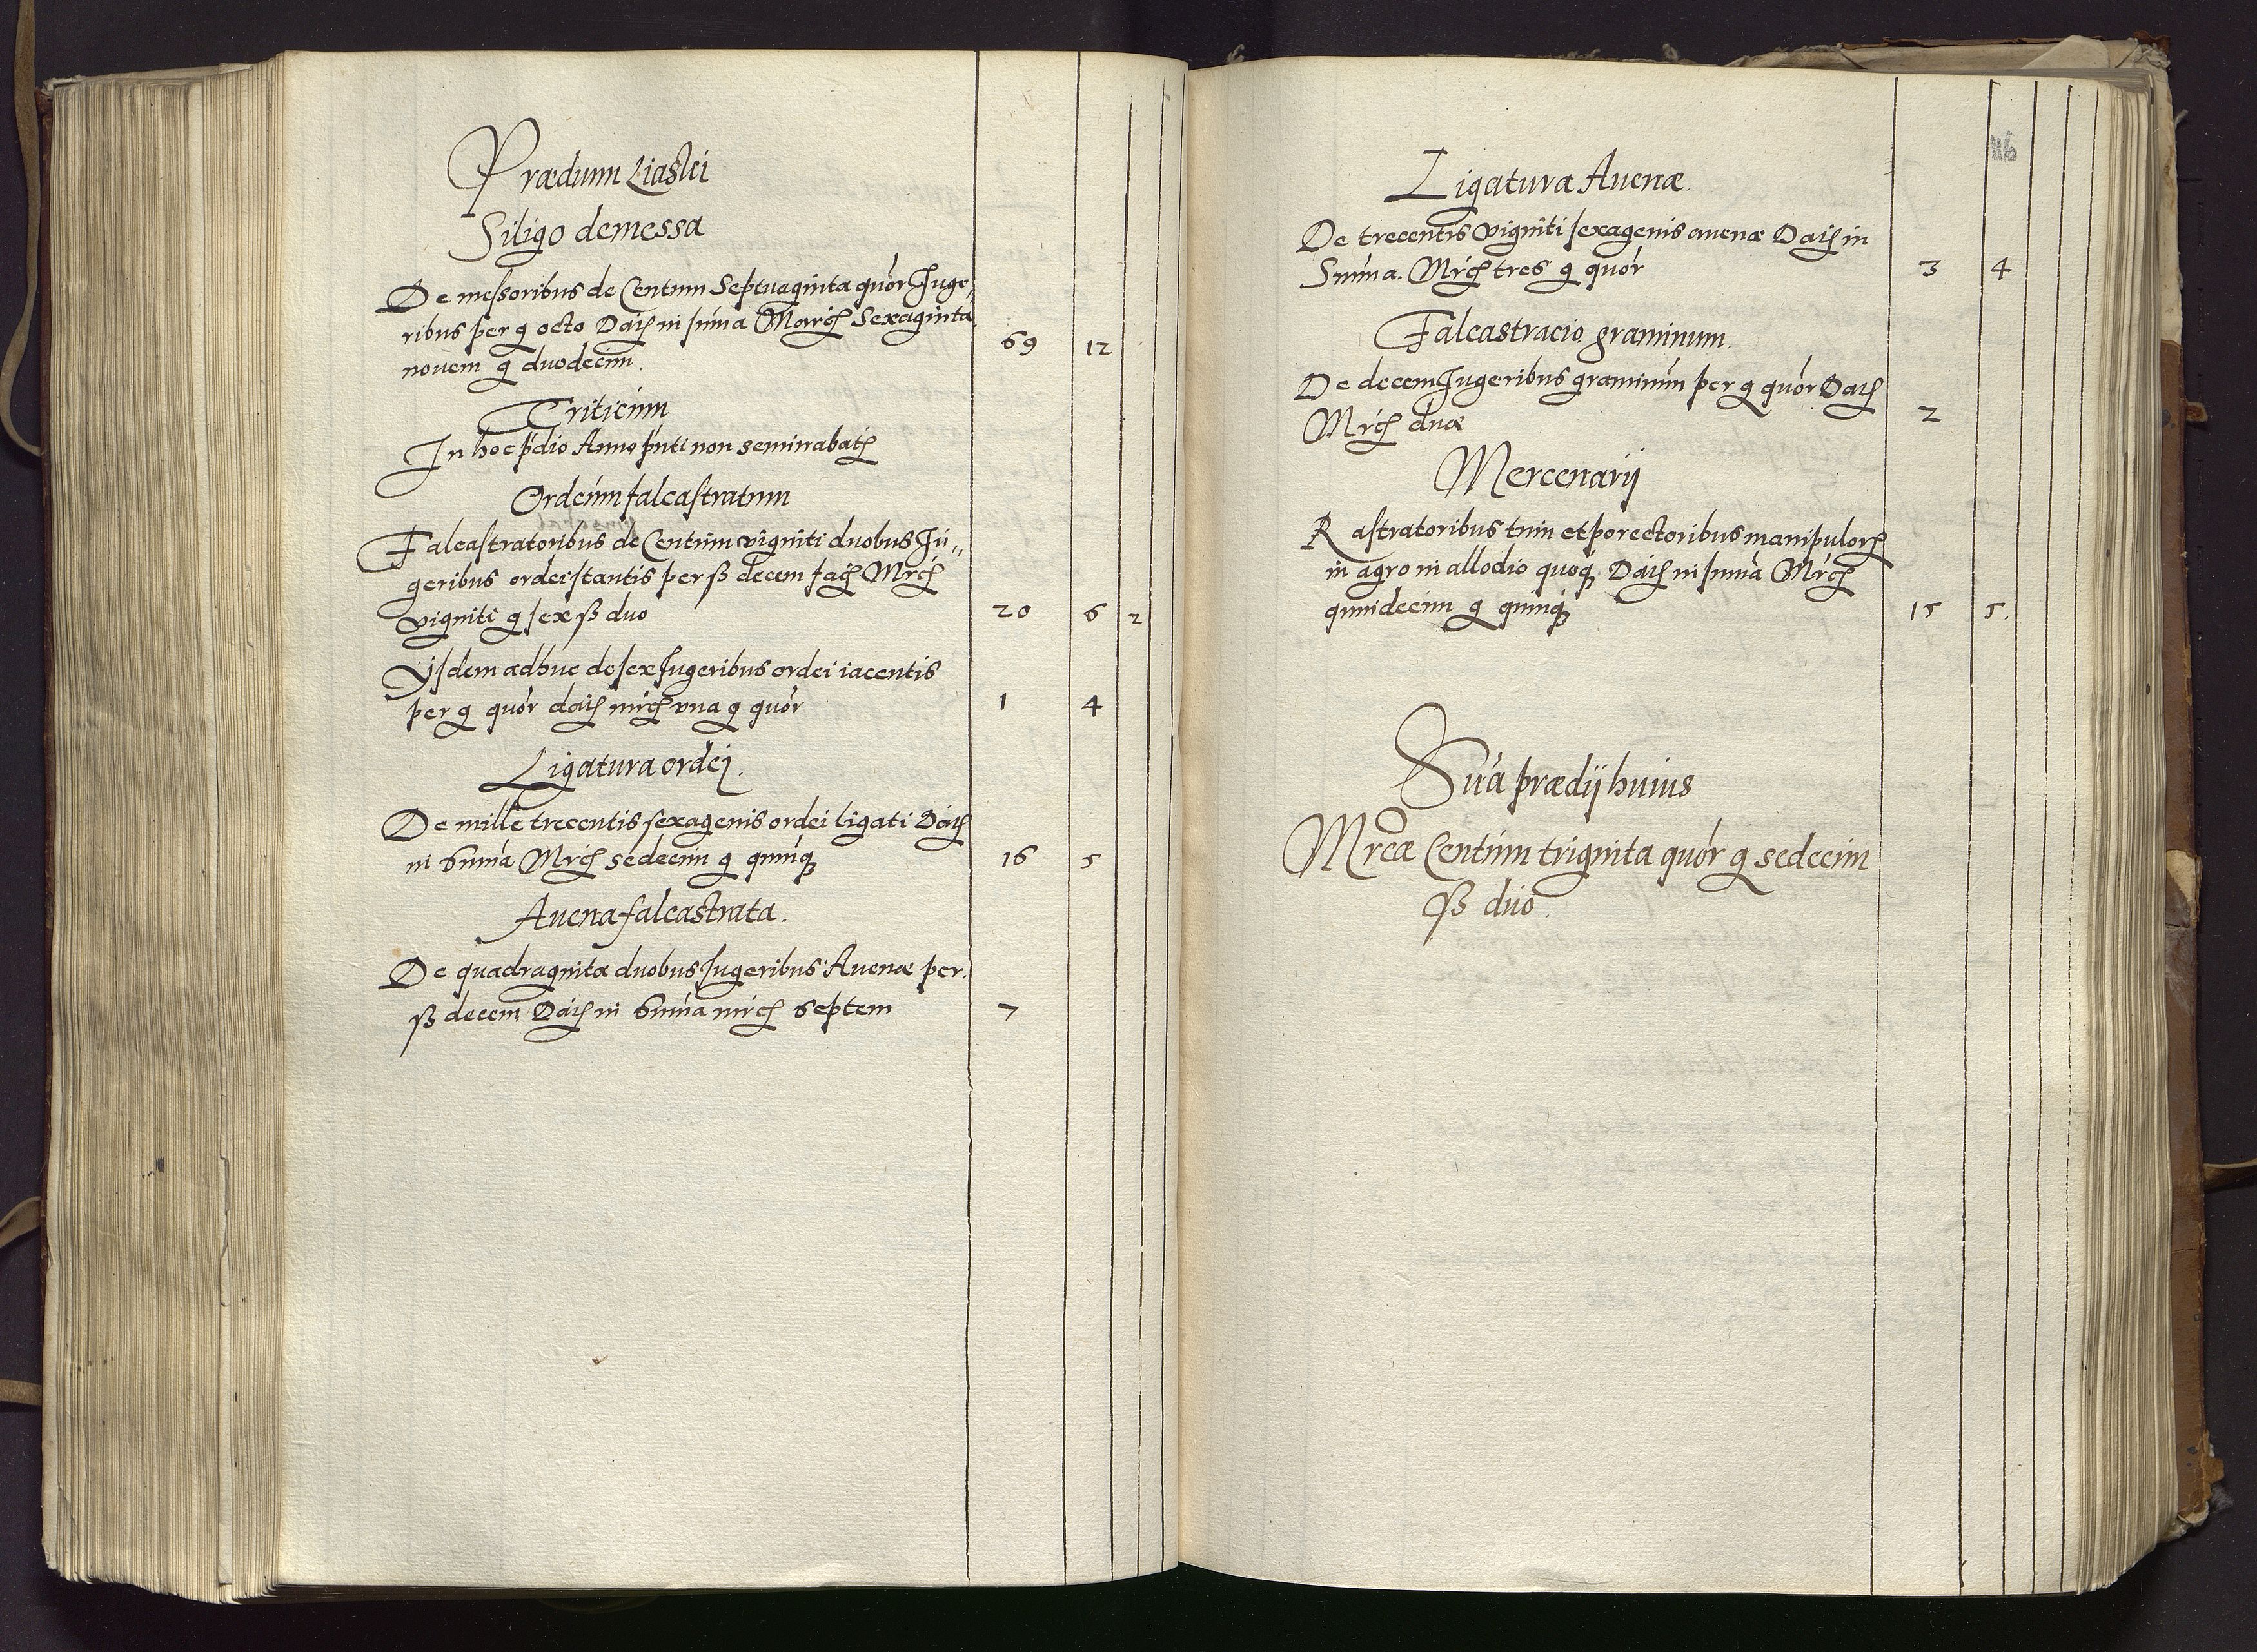 Prædium Liaski
Siligo demessa
De messoribus de Centum Septuaginta quór Juge„
ribus per g octo Datɥ in suma Marcɥ Sexaginta
nouem g duodecim. 69 12
Triticum
In hoc pdio Anno pnti non seminabatɥ
Ordeum falcastratum
Falcastratoribus de Centum viginti duobus Ju„
geribus ordei stantis per ß decem facɥ Mrcɥ
viginti g sex ß duo 20 6 2
Ysdem adhuc de sex Jugeribus ordei iacentis
per g quór datɥ mrcɥ vna g quór 1 4
Ligatura ordej.
De mille trecentis sexagenis ordei ligati Datɥ
in suma Mrcɥ sedecim g quinqȝ 16 5
Auena falcastrata.
De quadraginta duobus Jugeribus Auenæ per
ß decem Datɥ in suma mrcɥ septem 7
116
Ligatura Auenæ.
De trecentis viginti sexagenis auenæ Datɥ in
Suma. Mrcɥ tres g quór 3 4
Falcastracio graminum.
De decem Jugeribus graminum per g quór Datɥ
Mrcɥ duæ 2
Mercenarij
Rastratoribus tum et porectoribus manipulorɥ
in agro in allodio quoqȝ Datɥ in suma Mrcɥ
quindecim g quinqȝ 15 5.
Sua prædij huius
Mrcæ Centum triginta quór g sedecim
ß duo.